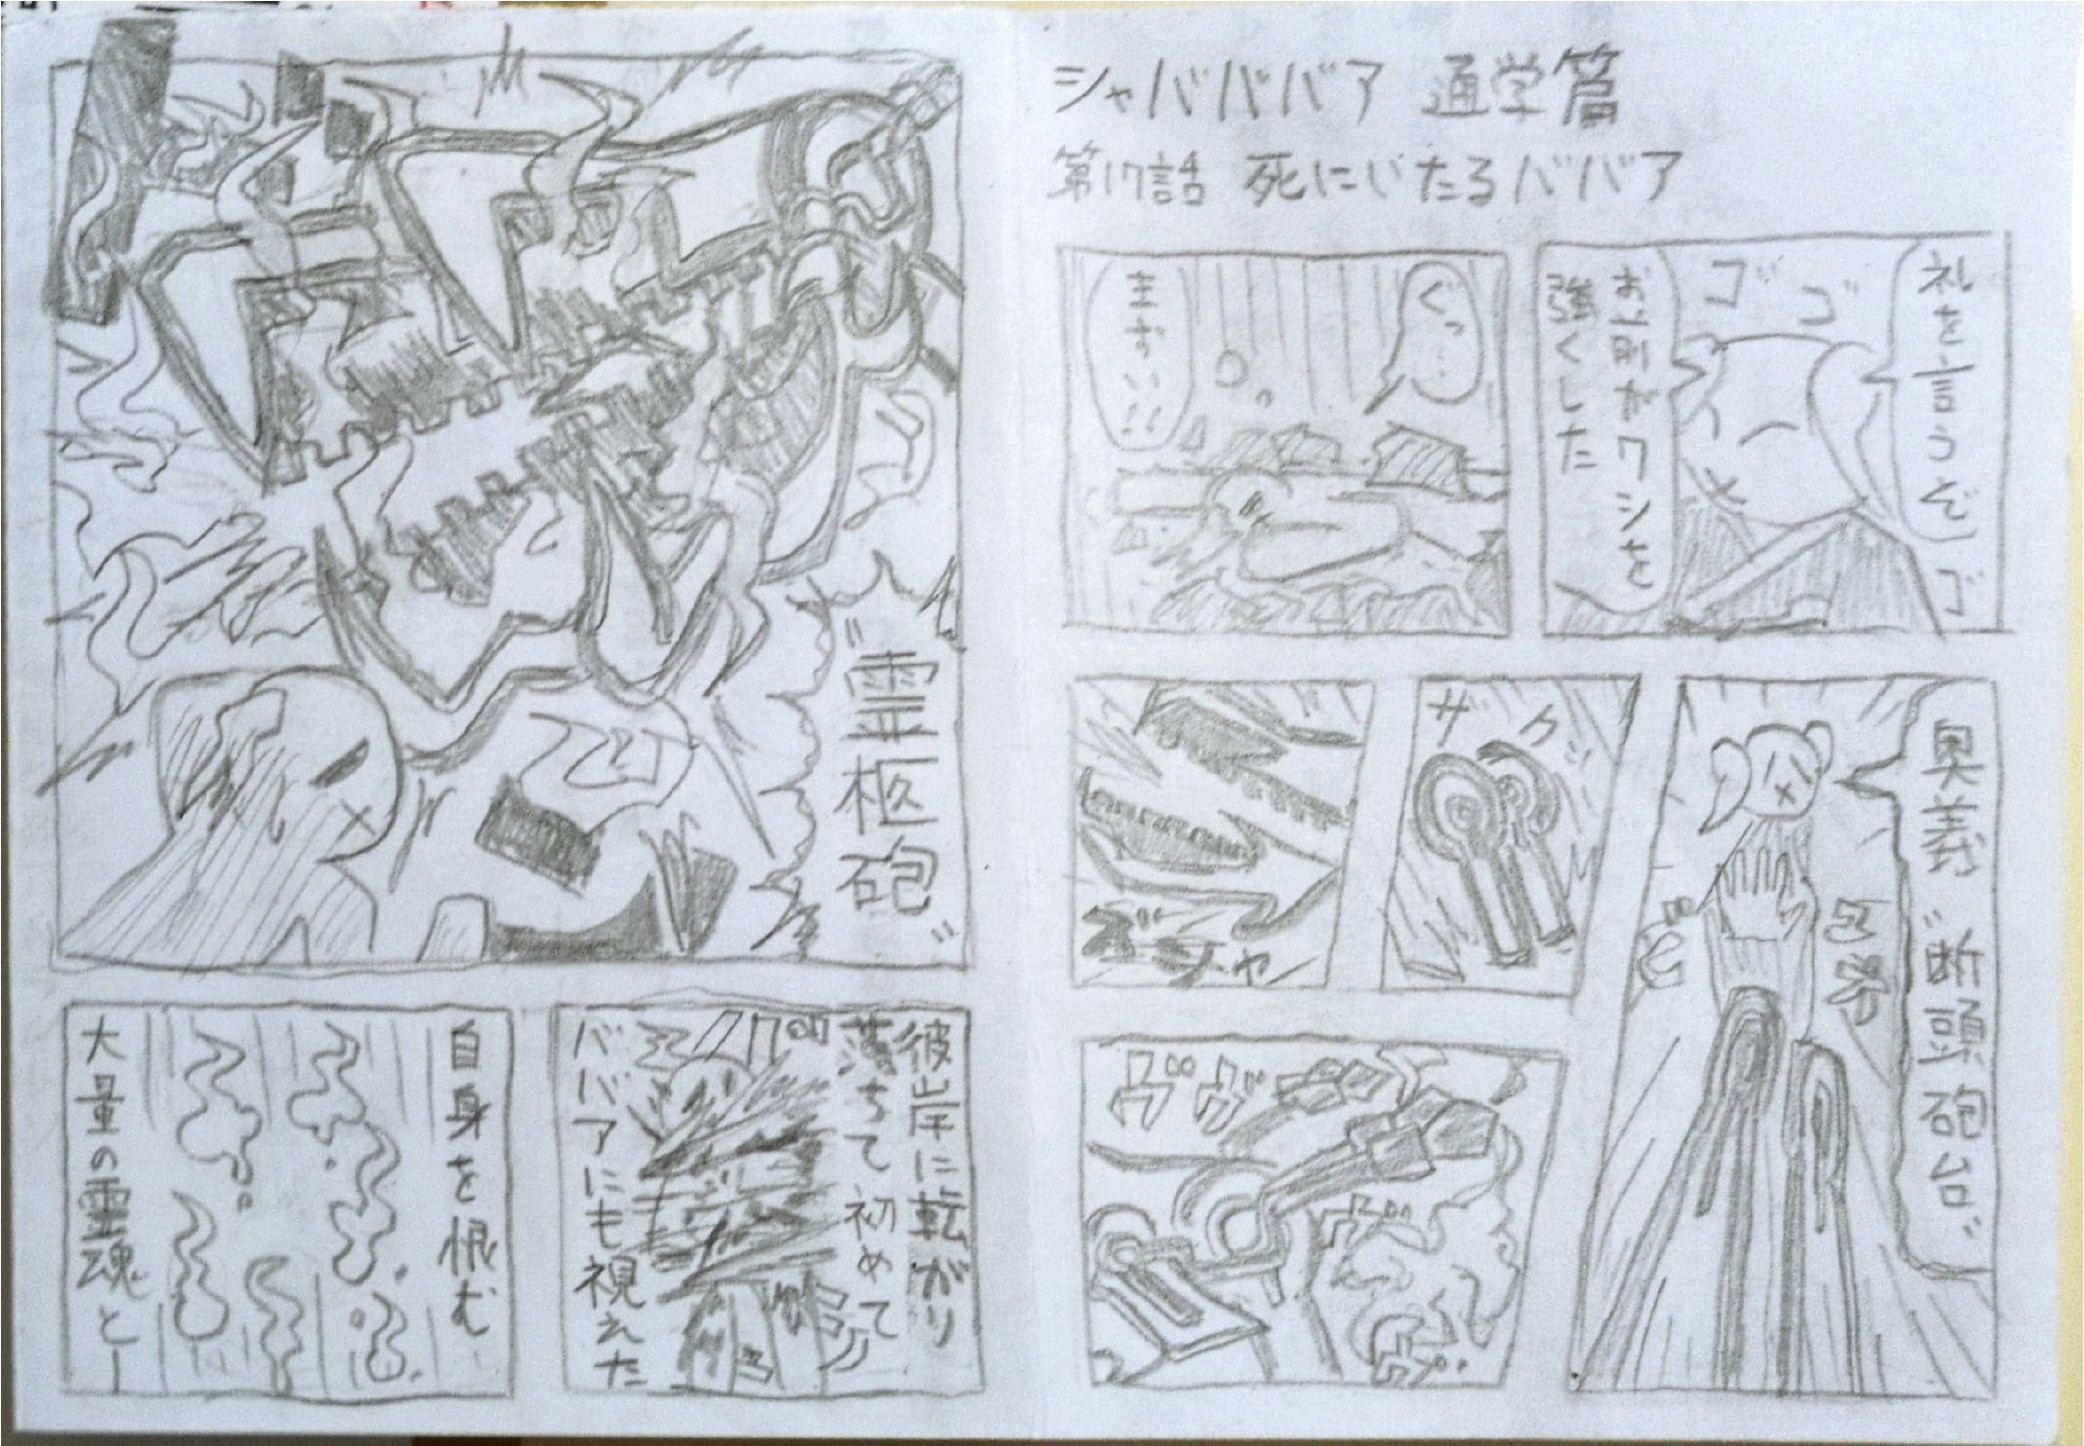 シャバババア 通学篇
第17話 死にいたるババア
礼を言うぞ
お前がワシを
強くした
ゴゴゴ
ぐっ…
まずい!!
奥義
“断頭砲台”
ザクッ
ズシャ
ヴヴ
ヴヴ
“霊柩砲”
彼岸に転がり
落ちて初めて
ババアにも視えた
自身を恨む
大量の霊魂と―